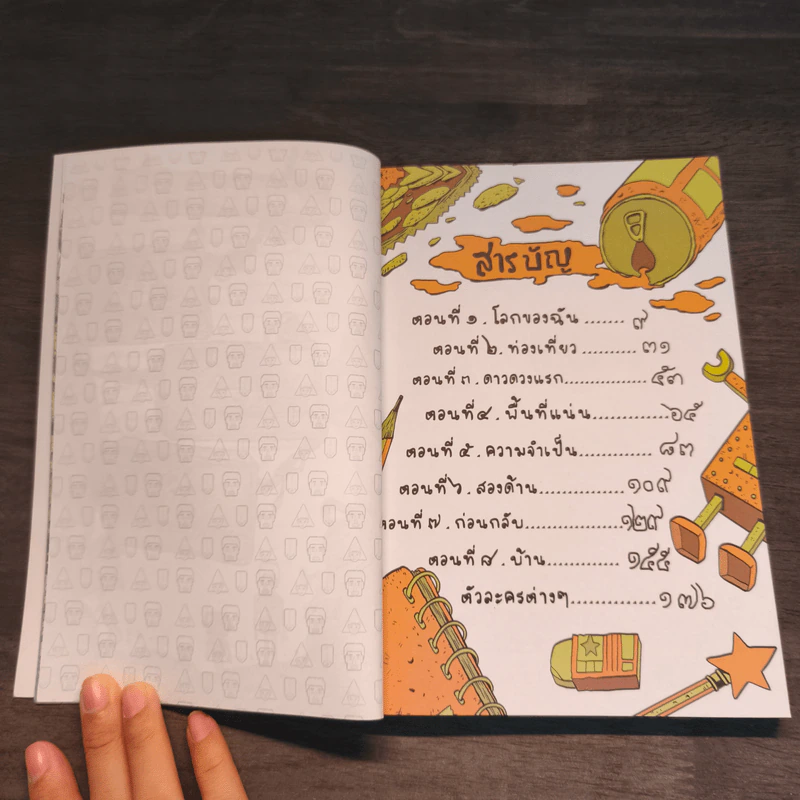 สารบัญ
ตอนที่ ๑. โลกของฉัน ....... ๙
ตอนที่ ๒. ท่องเที่ยว .......... ๓๑
ตอนที่ ๓. ดาวดวงแรก............... ๕๓
ตอนที่ ๔. พื้นที่แน่น..............๖๕
ตอนที่ ๕. ความจำเป็น............... ๘๓
ตอนที่ ๖. สองด้าน...............๑๐๙
ตอนที่ ๗. ก่อนกลับ.................๑๒๙
ตอนที่ ๘. บ้าน............. ๑๕๕
ตัวละครต่างๆ...............๑๗๖